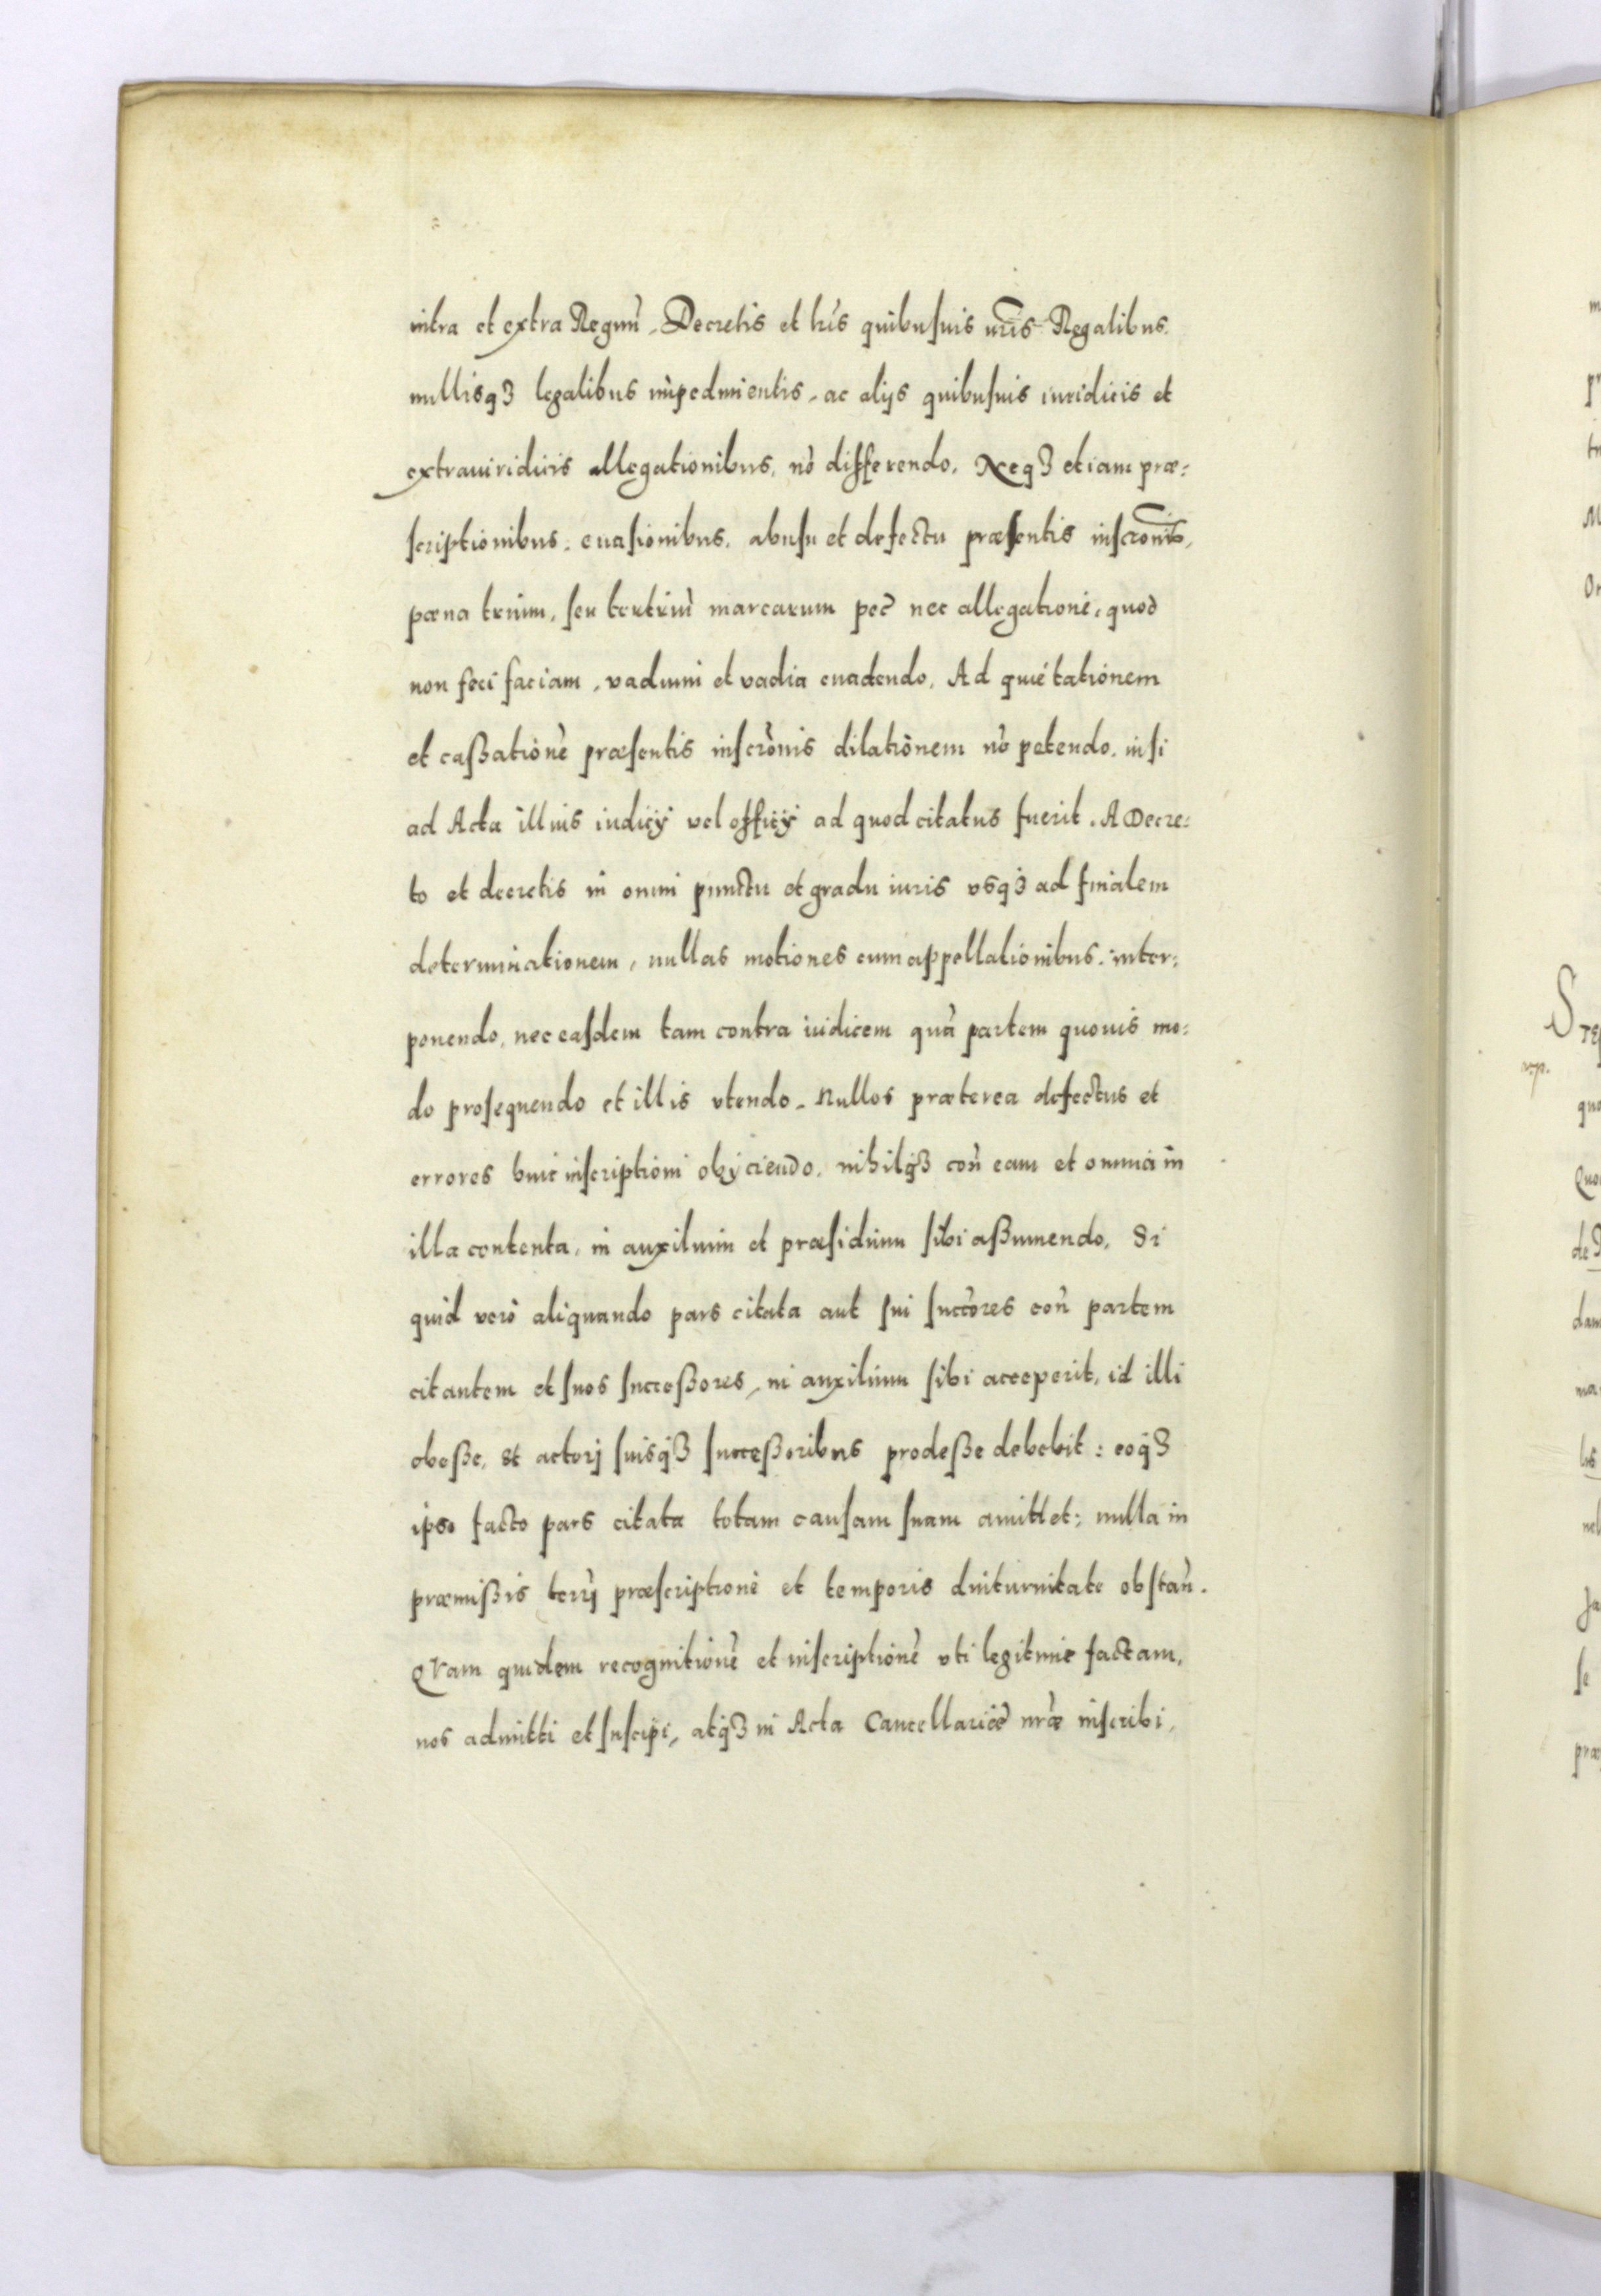 intra et extra Regnũ, Decretis et lr̃is quibusuis nr̃is Regalibus.
nullisqȝ legalibus impedimentis, ac alijs quibusuis iuridicis et
extraiuridicis allegationibus, nõ differendo. Neqȝ etiam præ:
scriptionibus, euasionibus, abusu et defectu præsentis inscr̃onis,
pœna trium, seu tertriũ marcarum pec̃ nec allegatione, quod
non feci faciam, vadium et vadia euadendo. Ad quietationem
et caßationẽ præsentis inscr̃onis dilationem nõ petendo, nisi
ad Acta illius iudicÿ vel officÿ ad quod citatus fuerit. A Decre:
to et decretis in omni punctu et gradu iuris vsqȝ ad finalem
determinationem, nullas motiones cum appellationibus, inter:
ponendo, nec easdem tam contra iudicem quã partem quouis mo:
do prosequendo et illis vtendo. Nullos præterea defectus et
errores huic inscriptioni obijciendo, nihilqȝ coñ eam et omnia in
illa contenta, in auxilium et præsidium sibi aßumendo. Si
quid vero aliquando pars citata aut sui succõres coñ partem
citantem et suos succeßores, in auxilium sibi acceperit, id illi
obeße, et actorj suisqȝ succeßoribus prodeße debebit: eoqȝ
ipso facto pars citata totam causam suam amittet: nulla in
præmißis terrj præscriptione et temporis diuturnitate obstañ.
QVam quidem recognitionẽ et inscriptionẽ vti legitime factam,
nos admitti et suscipi, atqȝ in Acta Cancellariæ nr̃æ inscribi,